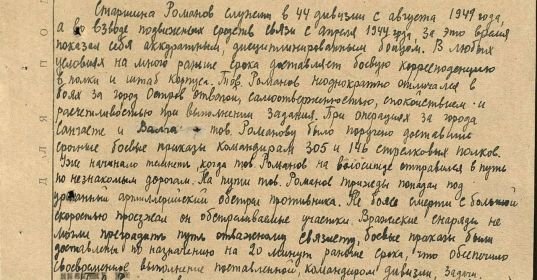 Старшина Романов служит в 44 дивизии с августа 1941 года,
а в взводе подвижных средств связи с апреля 1944 года, за это время
показал себя аккуратным, дисциплинированным бойцом. В любых
условиях на много раньше срока доставляет боевую корреспонденцию
в полки и штаб корпуса. Тов. Романов неоднократно отличался в
боях за город Остров отвагой, самоотверженностью, спокойствием и
расчетливостью при выполнении задания. При операциях за города
и Валга тов. Романову было поручено доставить
срочные боевые приказы командирам 305 и 146 стрелковых полков.
Уже начинало темнеть когда тов. Романов на велосипеде отправился в путь
по незнакомым дорогам. На пути тов. Романов трижды попадал под
ураганный артиллерийский обстрел противника. Не боясь смерти с большой
скоростью проезжал он обстреливаемые участки. Вражеские снаряды не
могли преградить путь отважному связисту, боевые приказы были
доставлены по назначению на 20 минут раньше срока, что обеспечило
своевременное выполнение поставленной командиром дивизии, задачи.